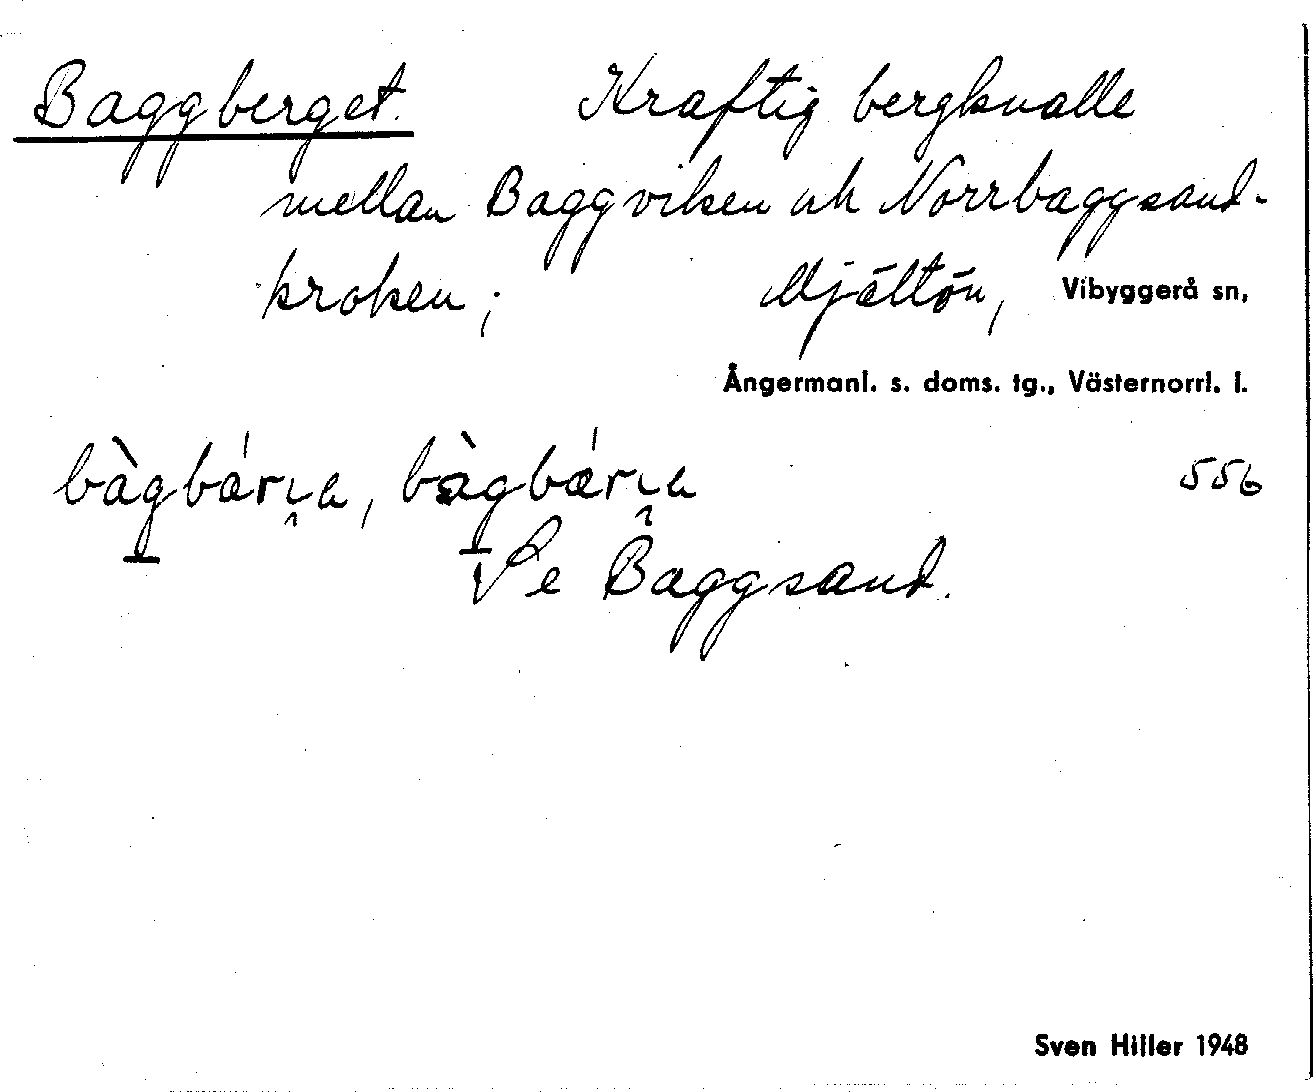 Baggberget. Kraftig bergknalle
mellan Baggviken och Norrbaggsand-
kroken; Mjältön, Vibyggerå sn,
Ångermanl. s. doms. tg., Västernorrl. l.
556
Se Baggsand.
Sven Hiller 1948